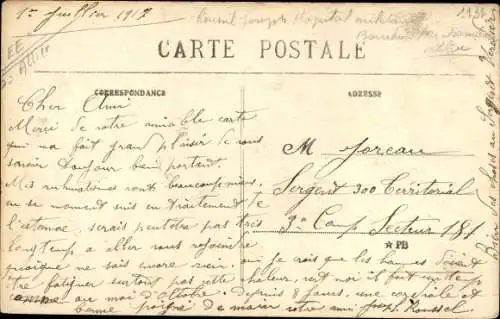 1er Juillet 1917
Hopital militaire
CARTE POSTALE
CORRESPONDANCE
ADRESSE
Cher Ami
Merci de votre aimable carte
qui ma fait grand plaisir de vous
savoir toujour bien portant.
Mes rhumatismes vont beaucoup mieux
en se moment suis en traitement de
l'estomac, serais peutetre pas très
longtemp a aller vous rejoindre
quoique ne sais encore rien, je crois que les hommes doivent
être fatiguer surtout pas cette chaleur, ici moi il fait un temps
comme au moi d'Octobre depuis 8 jours, une cordiale et
bonne poigné de main votre ami Roussel
M Moreau
Sergent 300 Territorial
3e Comp Secteur 181
★PB